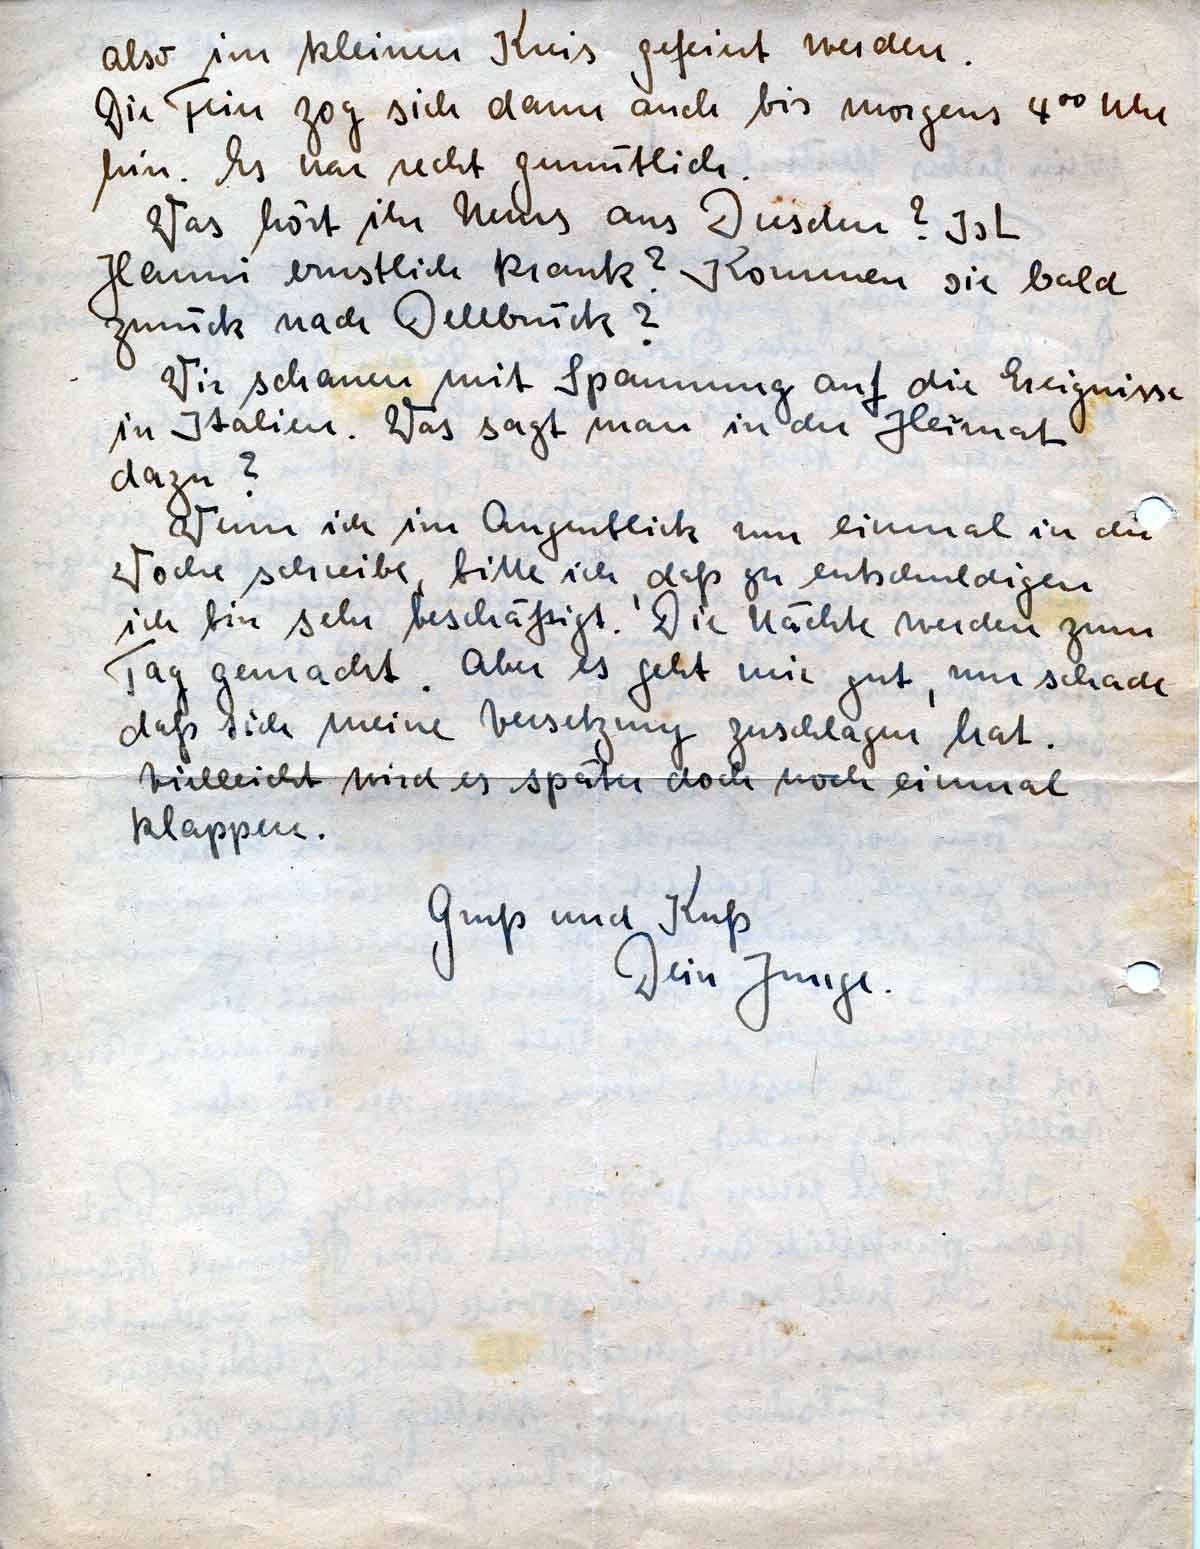 also im kleinen Kreis gefeiert werden.
Die Feier zog sich dann auch bis morgens 4⁰⁰ Uhr
hin. Es war recht gemütlich.
Was hört ihr Neues aus Dresden? Ist
Hanni ernstlich krank? Kommen sie bald
zurück nach Dellbrück?
Wir schauen mit Spannung auf die Ereignisse
in Italien. Was sagt man in der Heimat
dazu?
Wenn ich im Augenblick nur einmal in der
Woche schreibe, bitte ich, daß zu entschuldigen
ich bin sehr beschäftigt. Die Nächte werden zum
Tag gemacht. Aber es geht mir gut, nur schade
daß sich meine Versetzung zuschlagen hat.
Vielleicht wird es später doch noch einmal
klappen.
Gruß und Kuß
Dein Junge.